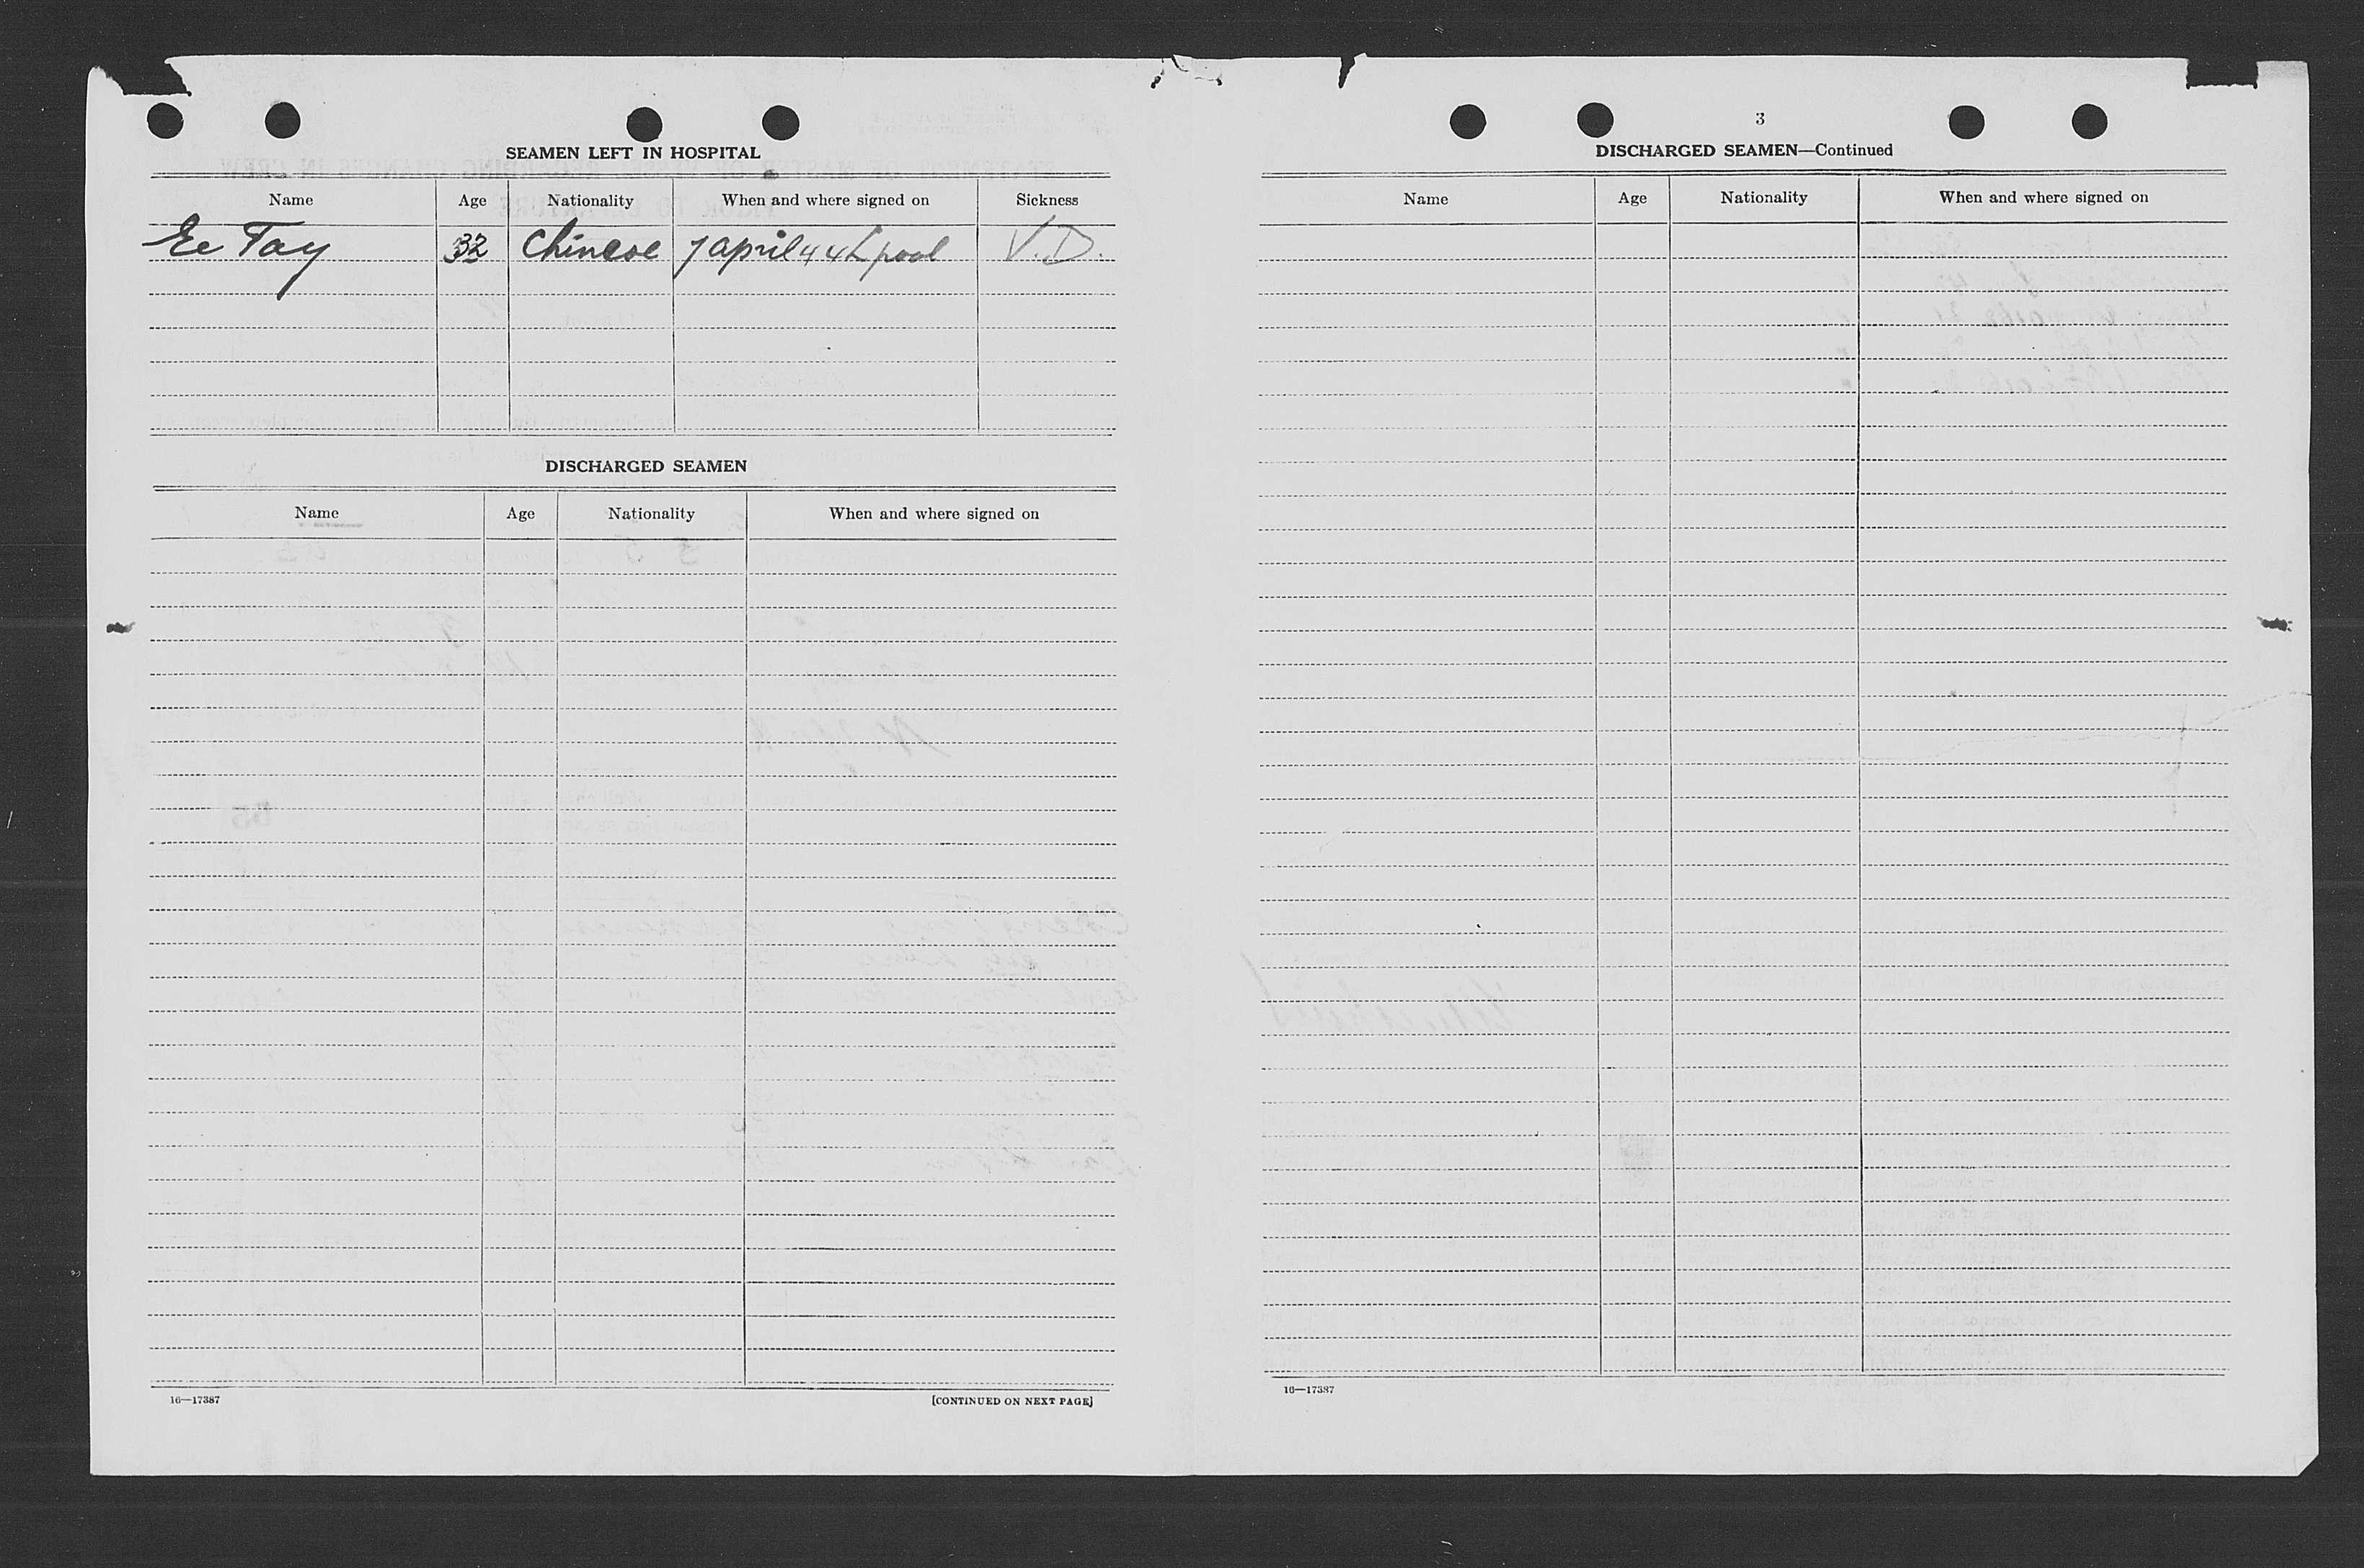 SEAMEN LEFT IN HOSPITAL
Name Age Nationality When and where signed on Sickness
Ee Tay 32 Chinese 7 april 44 Lpool V.D.
DISCHARGED SEAMEN
Name Age Nationality When and where signed on
16—17387 [CONTINUED ON NEXT PAGE]
3
DISCHARGED SEAMEN—Continued
Name Age Nationality When and where signed on
16—17387